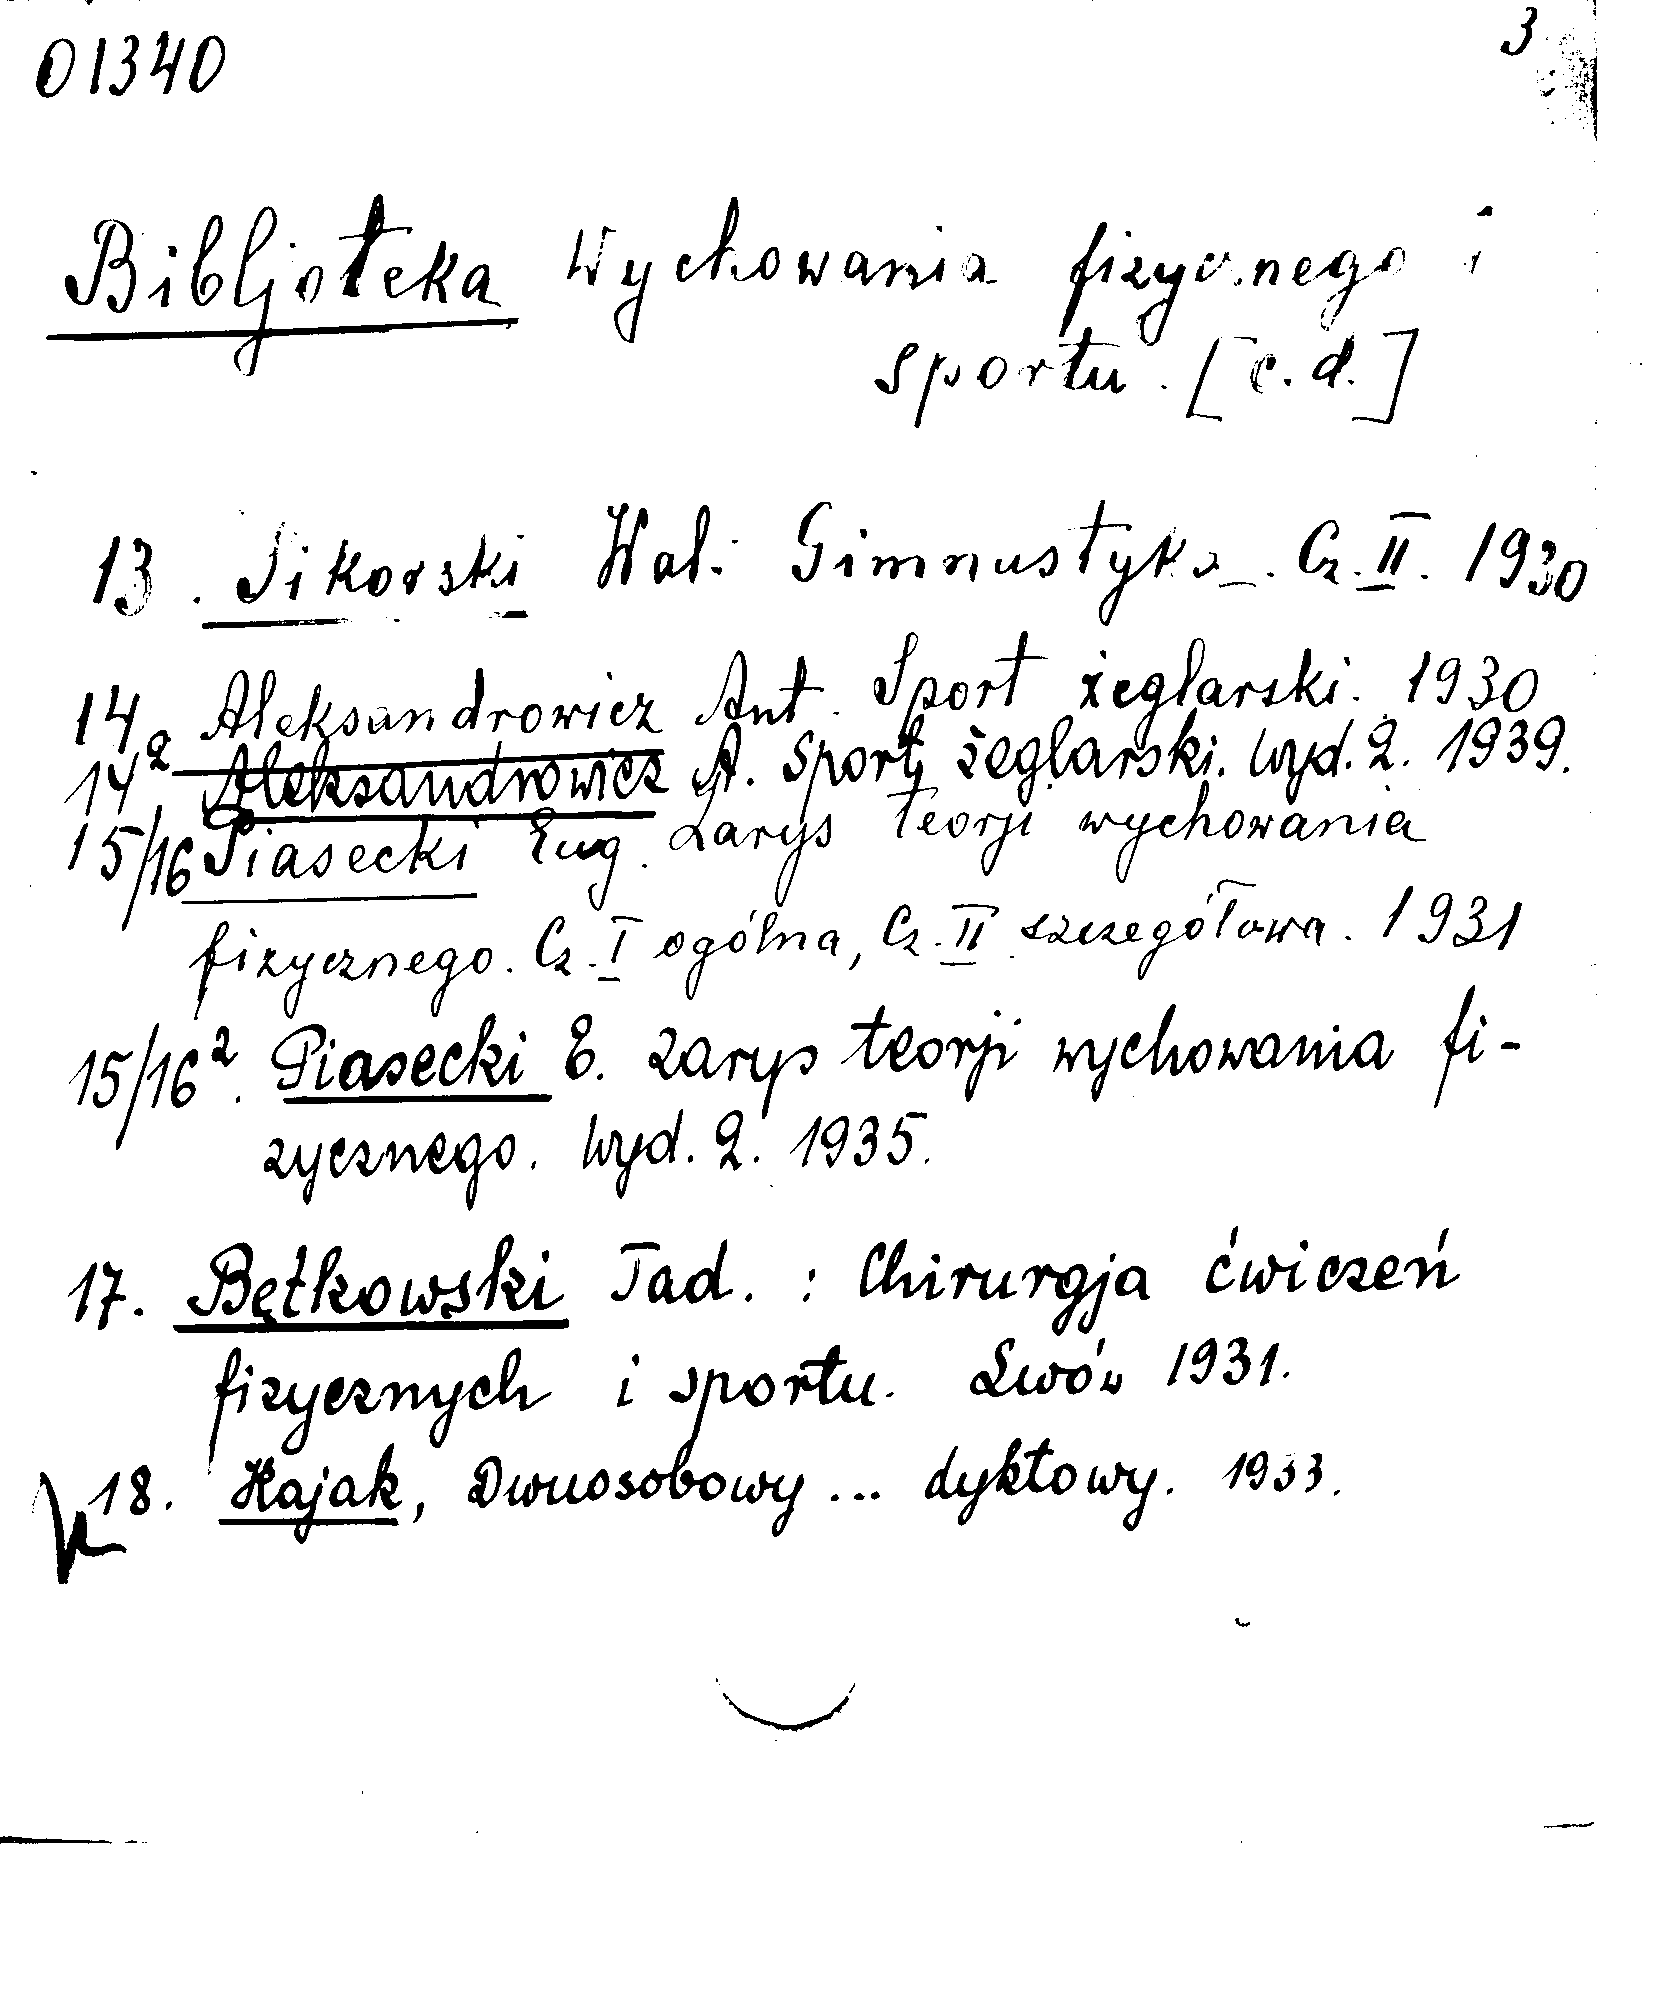 01340
3
Bibljoteka Wychowania fizycznego i
sportu. [c.d.]
13. Sikorski Wal. Gimnastyka. Cz. II. 1930
14. Aleksandrowicz Ant. Sport żeglarski. 1930
14² Aleksandrowicz A. Sport żeglarski. Wyd. 2. 1939.
15/16 Piasecki Eug. Zarys teorji wychowania
fizycznego. Cz. I ogólna, Cz. II szczegółowa. 1931
15/16². Piasecki E. Zarys teorji wychowania fi-
zycznego. Wyd. 2. 1935.
17. Bętkowski Tad. : Chirurgja ćwiczeń
fizycznych i sportu. Lwów 1931.
18. Kajak, Dwuosobowy... dyktowy. 1933.